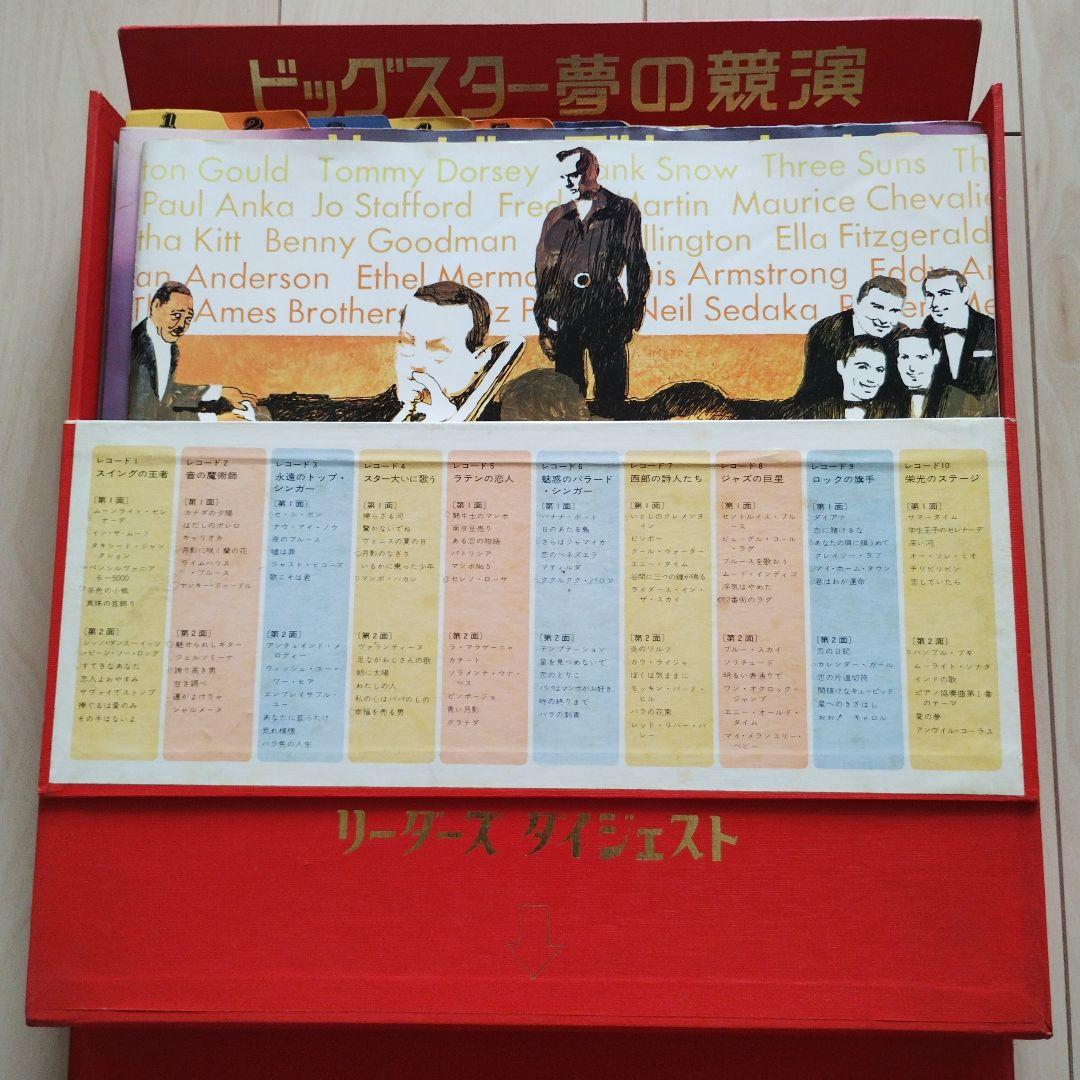 ビッグスター夢の競演
1 2 3 4
ton Gould Tommy Dorsey ank Snow Three Suns Th
Paul Anka Jo Stafford Fred Martin Maurice Chevalie
tha Kitt Benny Goodman llington Ella Fitzgerald
an Anderson Ethel Merm is Armstrong Eddy Ar
Th Ames Brothers ez P Neil Sedaka Me
レコード1
スイングの王者
[第1面]
ムーンライト・セレ
ナーデ
イン・ザ・ムード
タキシード・ジャン
クション
ペンシルヴァニア
6-5000
茶色の小瓶
真珠の首飾り
[第2面]
シッツ・ダンス〜イッツ
・ビーン・ソー・ロング
すてきなあなた
恋人よおやすみ
サヴォイでストンプ
捧ぐるは愛のみ
その手はないよ
レコード2
音の魔術師
[第1面]
カナダの夕陽
はだしのボレロ
キャリオカ
月影に咲く蘭の花
ライムハウス
・ブルース
ヤンキー・ドゥードル
[第2面]
魅せられしギター
ジェルソミーナ
誇り高き男
甘き調べ
運がよけりゃ
シャルメーヌ
レコード3
永遠のトップ・
シンガー
[第1面]
セ・シ・ボン
ナウ・アイ・ノウ
夜のブルース
嘘は罪
ジャスト・ビコーズ
歌こそは君
[第2面]
アンチェインド・メ
ロディー
ウィッシュ・ユー・
ワー・ヒア
エンブレイサブル・
ユー
あなたに首ったけ
荒れ模様
バラ色の人生
レコード4
スター大いに歌う
[第1面]
帰らざる河
驚かないでね
ヴェニスの夏の日
月影のなぎさ
いるかに乗った少年
マンボ・バカン
[第2面]
ヴァランティーナ
足ながおじさんの歌
朝に太陽
わたしの人
私の心はパパのもの
幸福を売る男
レコード5
ラテンの恋人
[第1面]
闘牛士のマンボ
南京豆売り
ある恋の物語
パトリシア
マンボNo.5
セレソ・ローサ
[第2面]
ラ・マラゲーニャ
カチート
ソラメンテ・ウナ・
ベス
ビンボージョ
青い月影
グラナダ
レコード6
魅惑のバラード
・シンガー
[第1面]
バナナ・ボート
日のあたる島
さらばジャマイカ
恋のベネズエラ
マティルダ
ククルクク・パロマ
[第2面]
テンプテーション
星を見つめないで
恋のとりこ
パパはマンボがお好き
時の終りまで
バラの刺青
レコード7
西部の詩人たち
[第1面]
いとしのクレメンタ
イン
ビンボー
クール・ウォーター
エニー・タイム
谷間に三つの鐘が鳴る
ライダース・イン・
ザ・スカイ
[第2面]
炎のワルツ
カウ・ライジャ
ぼくは気ままに
モッキン・バード・
ヒル
バラの花束
レッド・リバー・バ
レー
レコード8
ジャズの巨星
[第1面]
セントルイス・ブル
ース
ビューグル・コール
・ラグ
ブルースを歌おう
ムード・インディゴ
浮気はやめた
12番街のラグ
[第2面]
ブルー・スカイ
ソリチュード
明るい表通りで
ワン・オクロック・
ジャンプ
エニー・オールド・
タイム
マイ・メランコリー・
ベビー
レコード9
ロックの旗手
[第1面]
ダイアナ
恋に賭けるな
あなたの肩に頬うめて
クレイジー・ラブ
マイ・ホーム・タウン
君はわが運命
[第2面]
恋の日記
カレンダー・ガール
恋の片道切符
間抜けなキューピッド
星へのきざはし
おお!キャロル
レコード10
栄光のステージ
[第1面]
サマータイム
学生王子のセレナーデ
深い河
オー・ソレ・ミオ
チリビリビン
恋していたら
[第2面]
バンブル・ブギ
ムーライト・ソナタ
インドの歌
ピアノ協奏曲第1番
のテーマ
愛の夢
アンヴィル・コーラス
リーダーズ ダイジェスト